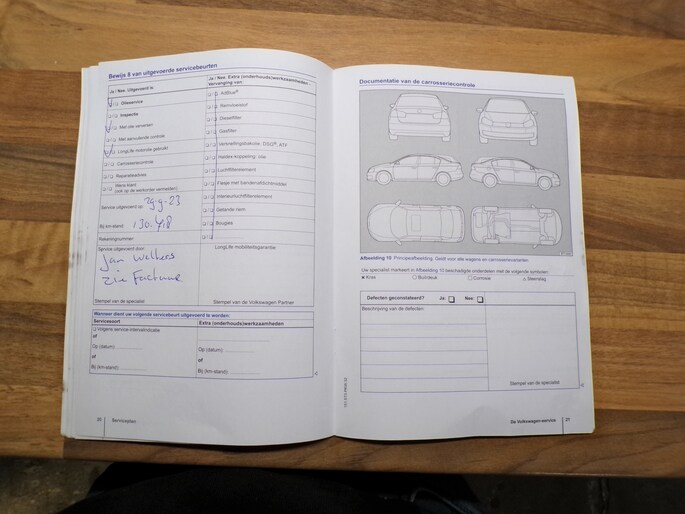 Bewijs 8 van uitgevoerde servicebeurten
Ja / Nee Uitgevoerd is:
Olieservice
Inspectie
Met olie verversen
Met aanvullende controle
LongLife motorolie gebruikt
Carrosseriecontrole
Reparatieadvies
Wens klant
(ook op de werkorder vermelden)
Service uitgevoerd op: 29-9-23
Bij km-stand: 130.418
Rekeningnummer:
Service uitgevoerd door:
Jan Wolters
zie Factuur
Stempel van de specialist
Ja / Nee Extra (onderhouds)werkzaamheden -
Vervanging van:
AdBlue®
Remvloeistof
Dieselfilter
Gasfilter
Versnellingsbakolie: DSG®, ATF
Haldex koppeling: olie
Luchtfilterelement
Flesje met bandendichtmiddel
Interieurluchtfilterelement
Getande riem
Bougies
LongLife mobiliteitsgarantie
Stempel van de Volkswagen Partner
Wanneer dient uw volgende servicebeurt uitgevoerd te worden:
Servicesoort
Extra (onderhouds)werkzaamheden
Volgens service-intervalindicatie
of
Op (datum):
Op (datum):
of
of
Bij (km-stand):
Bij (km-stand):
20
Serviceplan
Documentatie van de carrosseriecontrole
Afbeelding 10 Principeafbeelding: Geldt voor alle wagens en carrosserievarianten.
Uw specialist markeert in Afbeelding 10 beschadigde onderdelen met de volgende symbolen:
Kras
Buil/deuk
Corrosie
Steenslag
Defecten geconstateerd?
Ja:
Nee:
Beschrijving van de defecten:
Stempel van de specialist
De Volkswagen-service
21